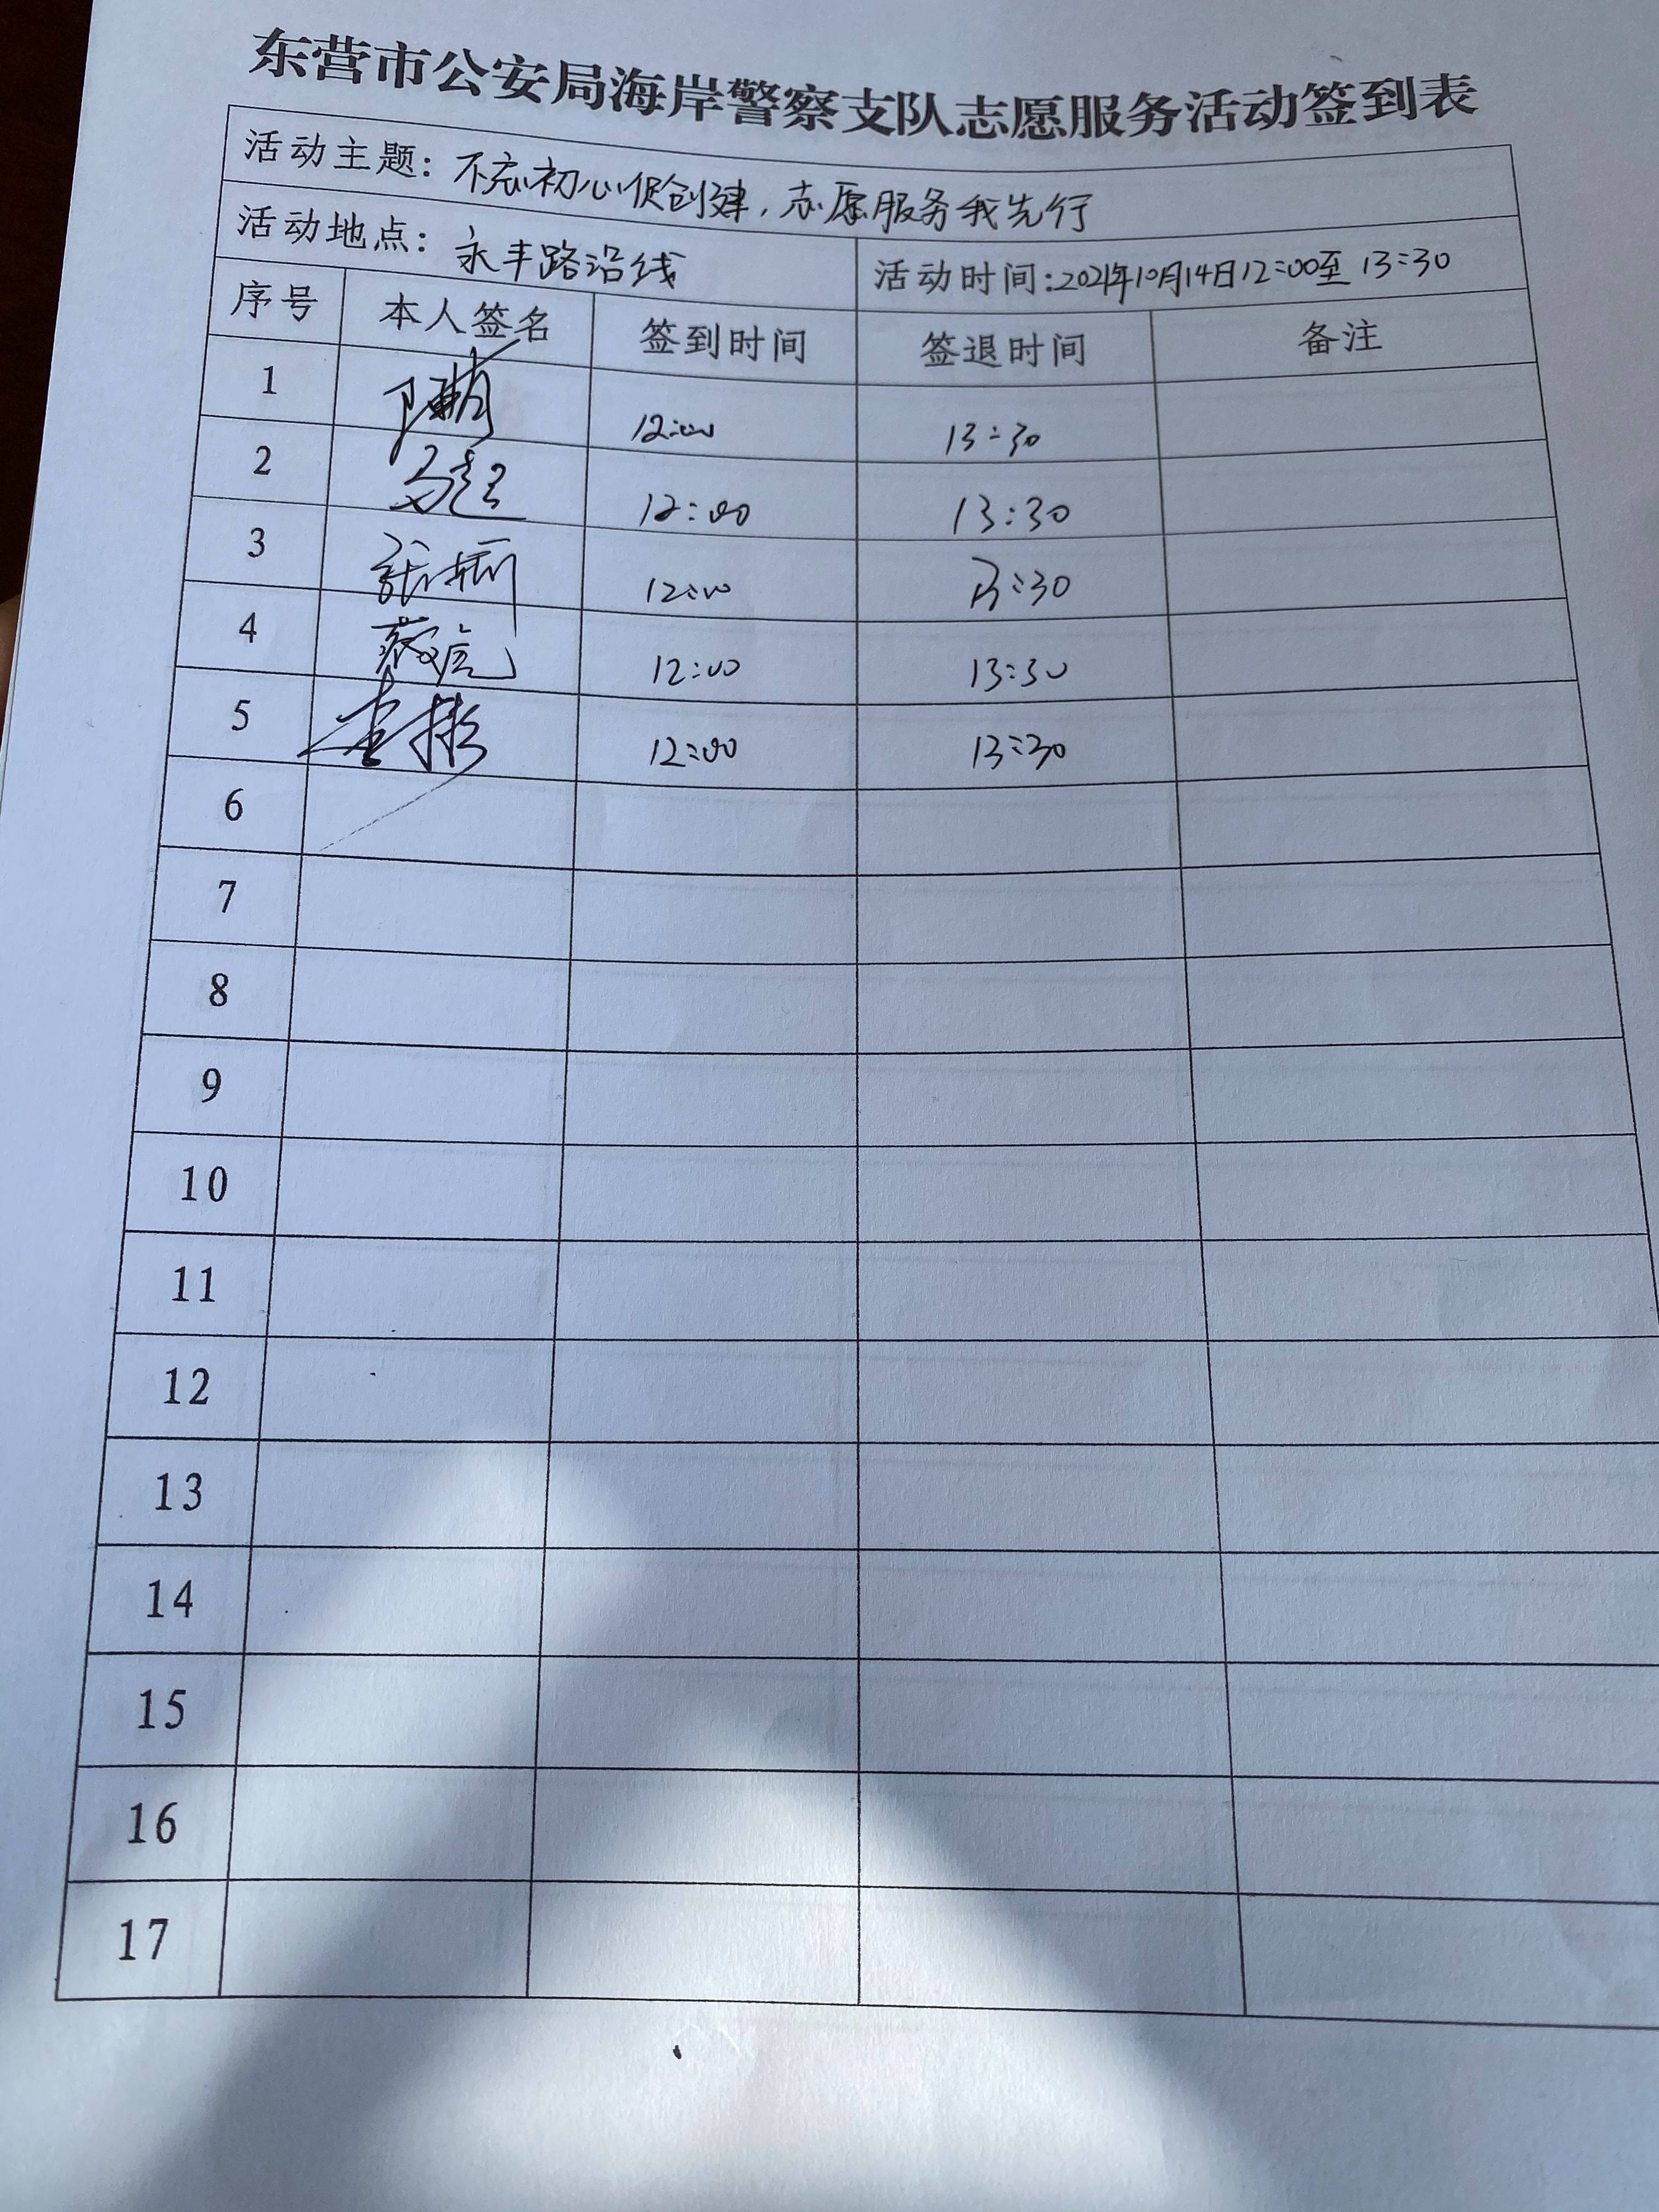 东营市公安局海岸警察支队志愿服务活动签到表
活动主题：不忘初心促创建，志愿服务我先行
活动地点：永丰路沿线 活动时间：2021年10月14日12:00至13:30
序号 本人签名 签到时间 签退时间 备注
1 12:00 13:30
2 马超 12:00 13:30
3 12:00 13:30
4 12:00 13:30
5 12:00 13:30
6
7
8
9
10
11
12
13
14
15
16
17